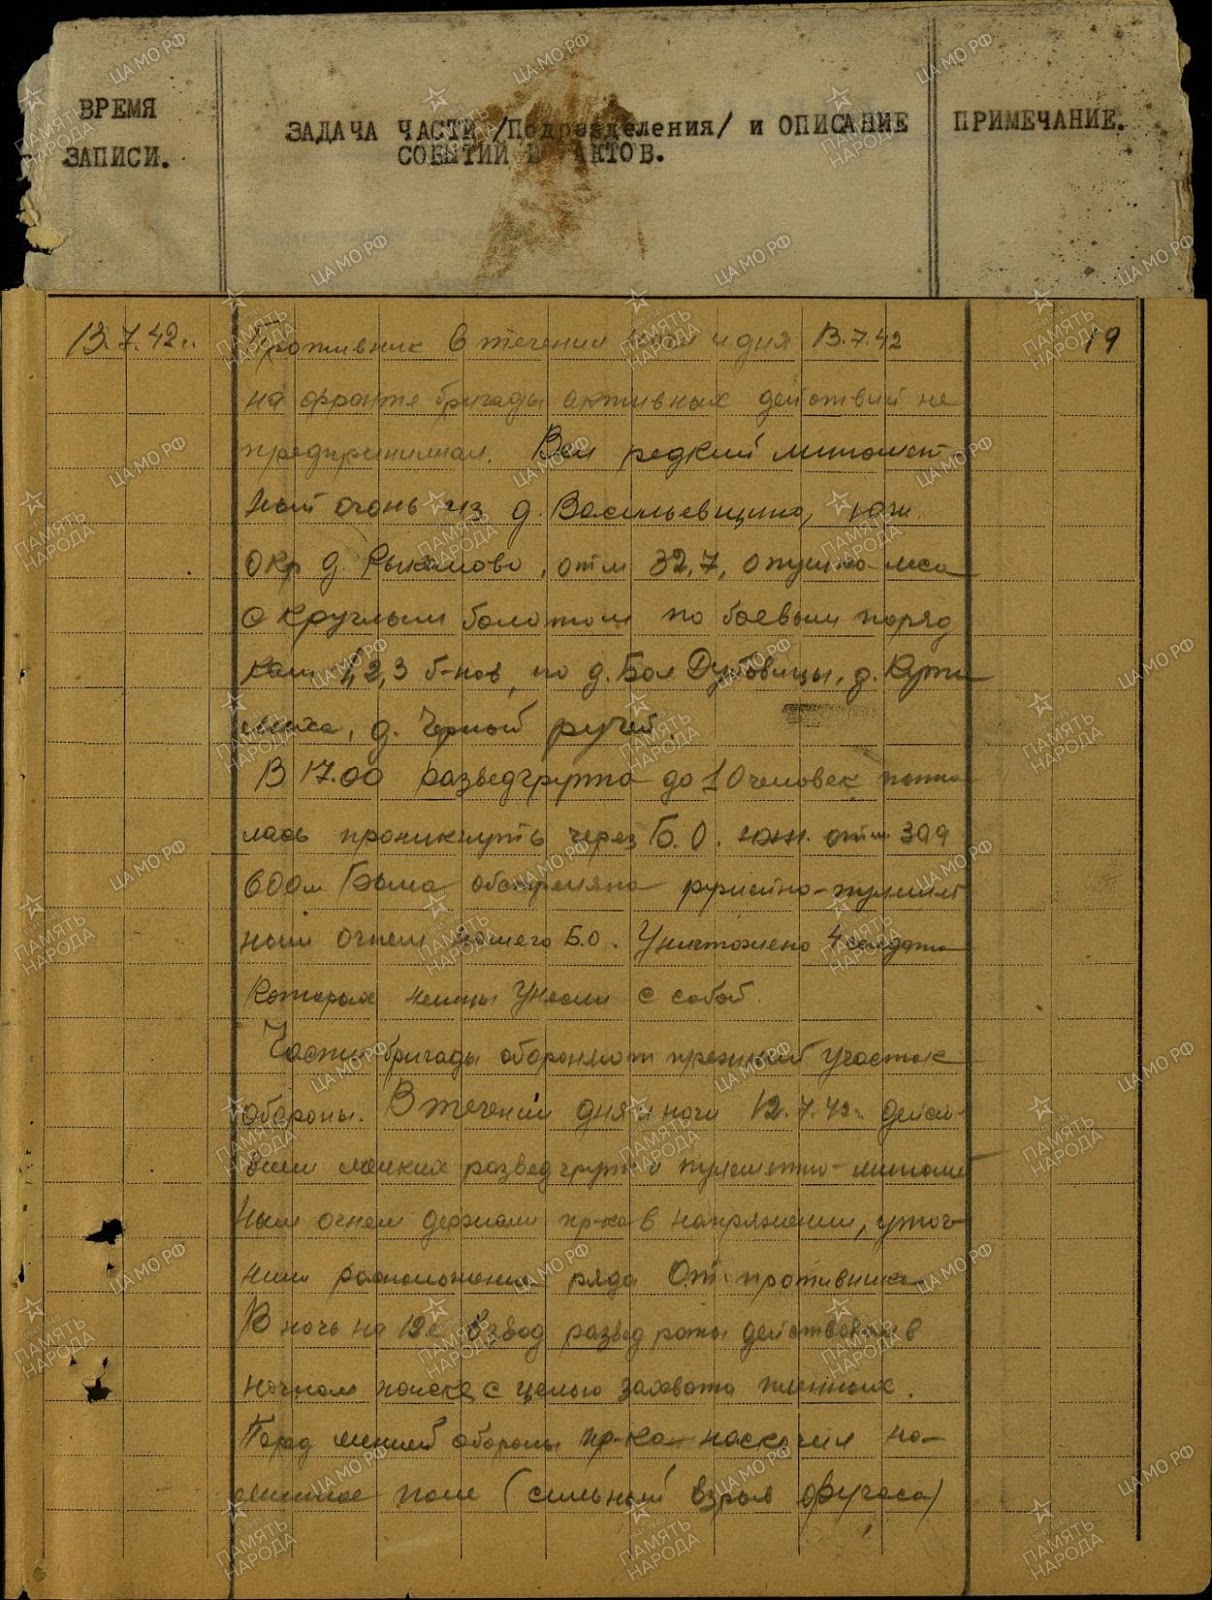 ВРЕМЯ
ЗАПИСИ.
ЗАДАЧА ЧАСТИ /Подразделения/ и ОПИСАНИЕ
СОБЫТИЙ И ФАКТОВ.
ПРИМЕЧАНИЕ.
13.7.42г.
19
Противник в течении ночи и дня 13.7.42
на фронте бригады активных действий не
предпринимал. Вел редкий миномет
ный огонь из д. Васильевщина, юж.
окр д. Рыкалово, отм 32,7, опушка леса
с круглым болотом по боевым поряд
кам 1,2,3 б-нов, по д. Бол Дубовицы, д. Кути
лиха, д. Черный ручей.
В 17.00 разведгруппа до 10 человек пыта
лась проникнуть через Б.О. южн. отм 30,9
600 м Была обстреляна ружейно-пулемет
ным огнем нашего Б.О. Уничтожено 4 солдата
которых немцы унесли с собой.
Части бригады обороняют прежний участок
обороны. В течении дня и ночи 12.7.42г. дейст
вием мелких разведгрупп и пулеметно-миномет
ным огнем держали пр-ка в напряжении, уточ-
нили расположение ряда О.т. противника.
В ночь на 12е взвод развед роты действовал в
ночном поиске с целью захвата пленных.
Перед линией обороны пр-ка наскочил на
минное поле (сильный взрыв фугаса)
ПАМЯТЬ
НАРОДА
ЦАМО РФ